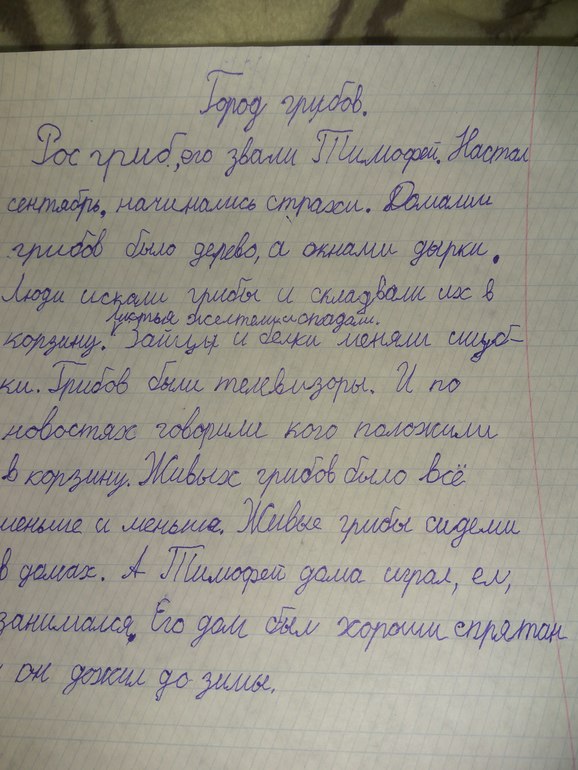 Город грибов.
Рос гриб, его звали Тимофей. Настал
сентябрь, начинались страхи. Домами
грибов было дерево, а окнами дырки.
Люди искали грибы и складвали их в
Листья желтели и опадали.
корзину. Зайцы и белки меняли шуб-
ки. Грибов были телевизоры. И по
новостях говорили кого положили
в корзину. Живых грибов было всё
меньше и меньше. Живые грибы сидели
в домах. А Тимофей дома играл, ел,
занимался. Его дом был хороши спрятан
и он дожил до зимы.